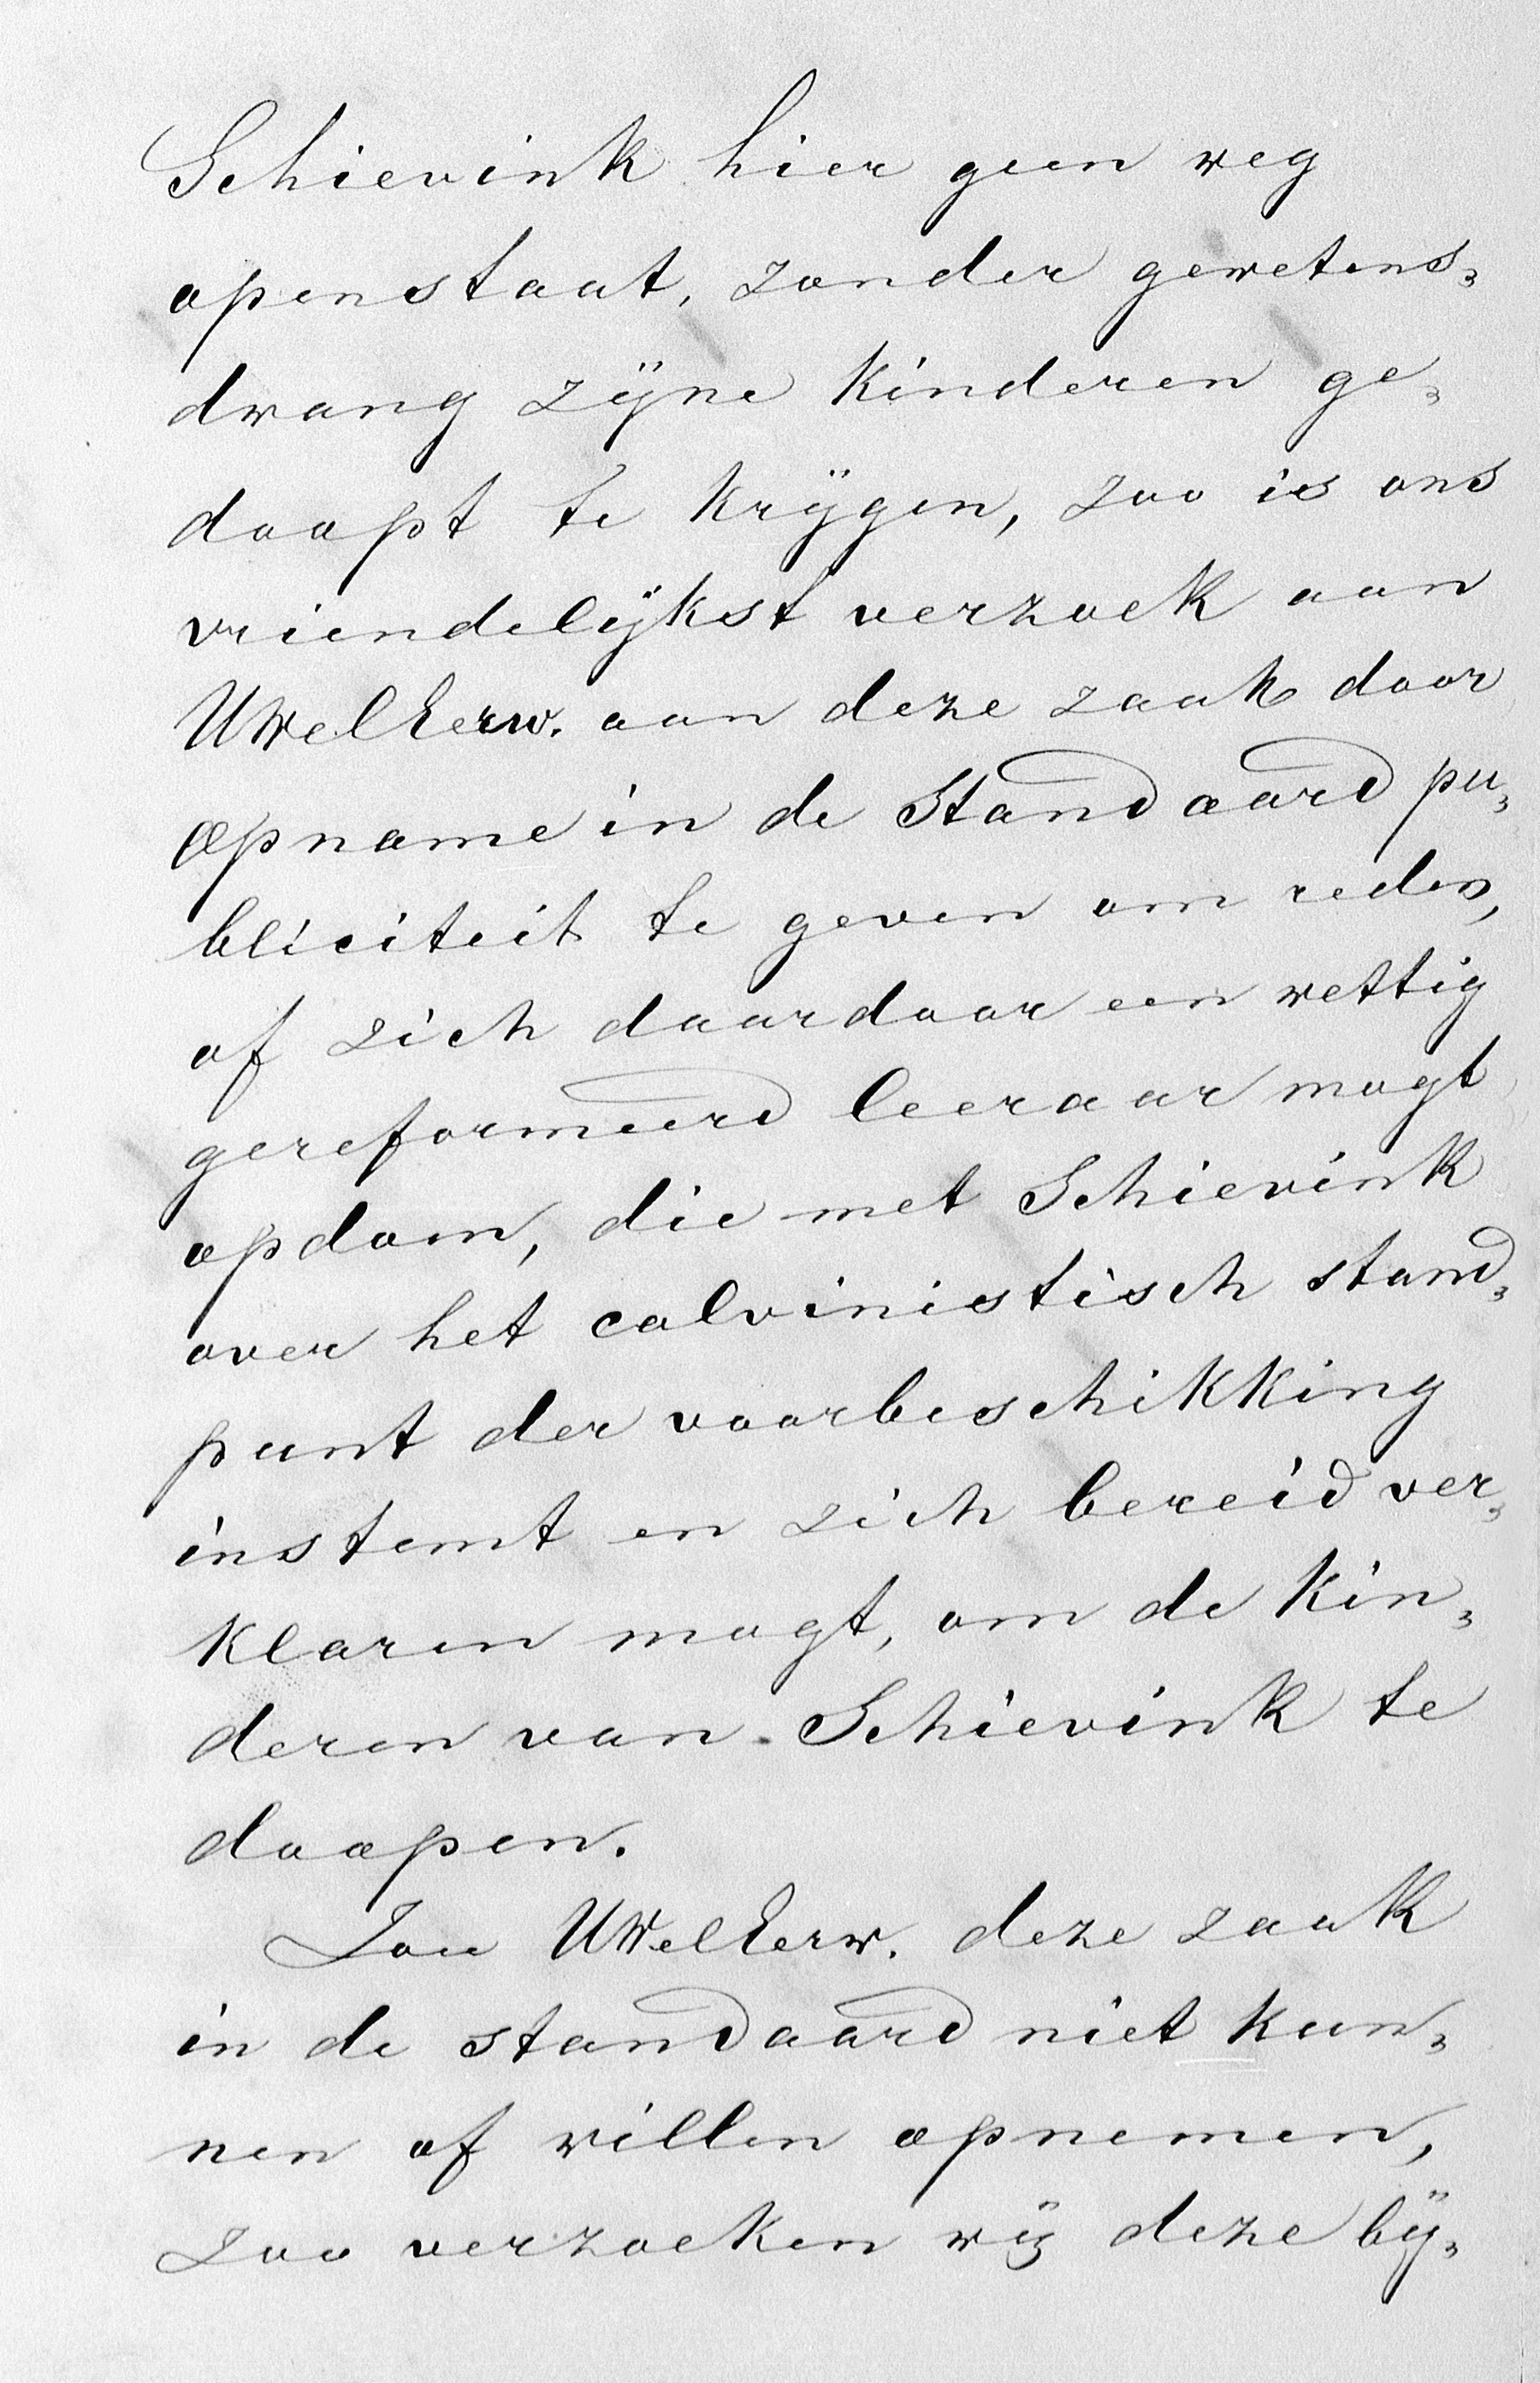 Schievink hier geen weg
openstaat, zonder gewetens„
dwang zijne kinderen ge„
doopt te krijgen, zoo is ons
vriendelijkst verzoek aan
UWelEerw. aan deze zaak door
opname in de Standaard pu„
bliciteit te geven om reden,
of zich daardoor een wettig
gereformeerd leeraar mogt
opdom, die met Schievink
over het calvinistisch stand„
punt der voorbeschikking
instemt en zich bereid ver„
klaren mogt, om de kin„
deren van Schievink te
doopen.
Zou UWelEerw. deze zaak
in de standaard niet kun„
nen of willen opnemen,
zoo verzoeken wij deze bij„